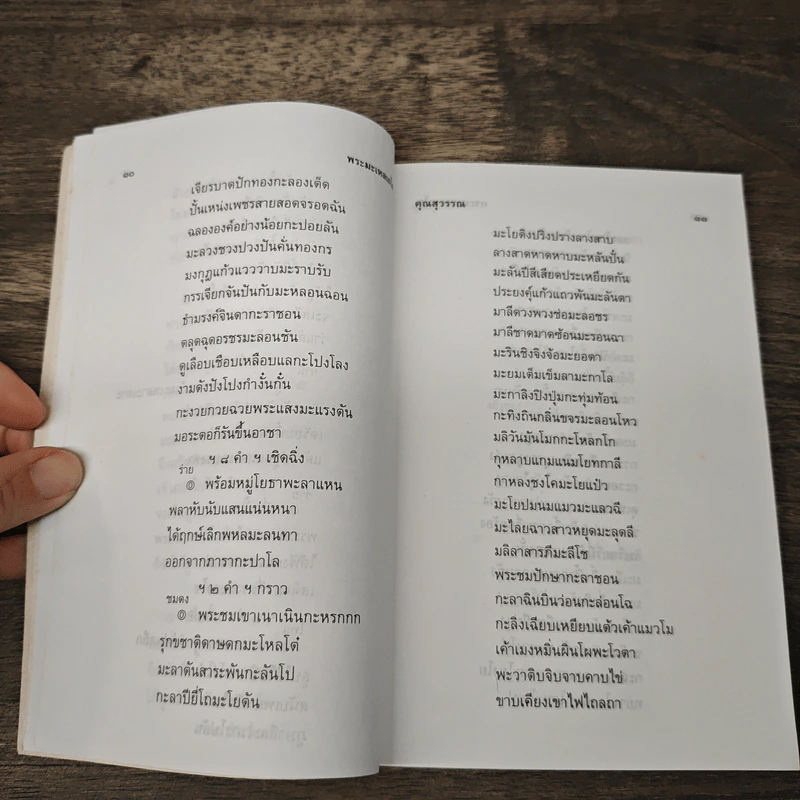 ๑๐
พระมะเหลเถไถ
เจียรบาดปักทองกะลองเต็ด
ปั้นเหน่งเพชรสายสอดจรอดฉัน
ฉลององค์อย่างน้อยกะปอยลัน
มะลวงชวงปวงปันคั่นทองกร
มงกุฎแก้วแวววาบมะราบรับ
กรรเจียกจันปันกับมะหลอนฉอน
ธำมรงค์จินดากะราชอน
ตลุดฉุดอรชรมะลอนชัน
ดูเลือบเชือบเหลือบแลกะโปงโลง
งามดังปังโปงกำงั้นกั้น
กะงวยกวยฉวยพระแสงมะแรงดัน
มอระตอก็รันขึ้นอาชา
ฯ ๘ คำ ฯ เชิดฉิ่ง
ร่าย
๏ พร้อมหมู่โยธาพะลาแหน
พลาหับนับแสนแน่นหนา
ได้ฤกษ์เลิกพหลมะลนทา
ออกจากภารากะปาโล
ฯ ๒ คำ ฯ กราว
ชมดง
๏ พระชมเขาเนาเนินกะหรกกก
รุกขชาติดาษดกมะโหลโต๋
มะลาดันสาระพันกะลันโป
กะลาปียี่โถมะโยดัน
คุณสุวรรณ
๑๑
มะโยติงปริงปรางลางสาบ
ลางสาดหาดหาบมะหลันปั้น
มะลันปีสีเสียดประเหยียดกัน
ประยงค์ุแก้วแถวพันมะลันตา
มาลีดวงพวงช่อมะลอชร
มาลีชาดมาดซ้อนมะรอนฉา
มะรินชิงจิงจ้อมะยอตา
มะยมเต็มเข็มลามะกาโล
มะกาลิงปิงปุ่มกะทุ่มท้อน
กะทิงถินกลิ่นขจรมะลอนโหว
มลิวันมันโมกกะโหลกโก
กุหลาบแกมแนมโยทกาลี
กาหลงชงโคมะโยแป๋ว
มะโยปมนมแมวมะแลวฉี
มะไลยฉาวสาวหยุดมะลุดลี
มลิลาสารภีมะลีโช
พระชมปักษากะลาชอน
กะลาฉินบินว่อนกะล่อนโฉ
กะลิงเฉียบเหยียบแต้วเค้าแมวโม
เค้าเมงหมิ่นผินโผพะโวตา
พะวาดิบจิบจาบคาบไข่
ขาบเคียงเขาไฟไถลถา